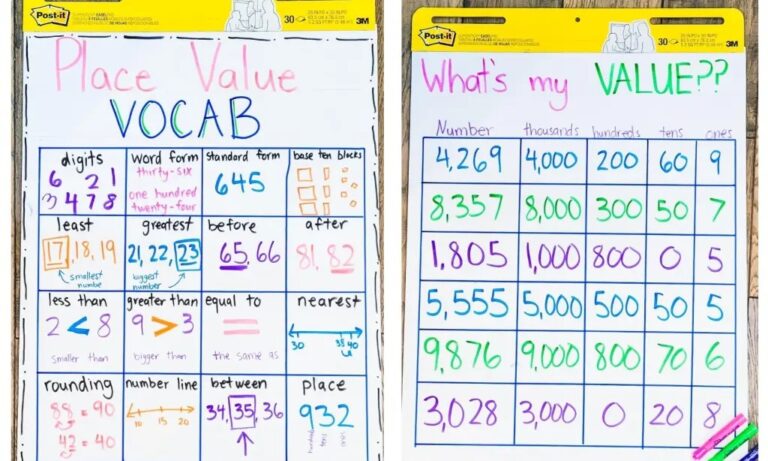 Post-it
30
3M
Place Value
VOCAB
digits
6 2 1
3 4 7 8
word form
thirty-six
one hundred
twenty-four
standard form
645
base ten blocks
least
17, 18, 19
smallest
numbe
greatest
21, 22, 23
biggest
number
before
65, 66
after
81, 82
less than
2 < 8
smaller than
greater than
9 > 3
bigger than
equal to
=
the same as
nearest
30 38 40
rounding
88 = 90
42 = 40
number line
10 15 20
between
34, 35, 36
place
932
hundreds
tens
ones
Post-it
30
3M
What's my VALUE??
Number thousands hundreds tens ones
4,269 4,000 200 60 9
8,357 8,000 300 50 7
1,805 1,000 800 0 5
5,555 5,000 500 50 5
9,876 9,000 800 70 6
3,028 3,000 0 20 8